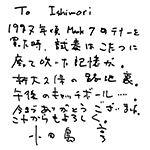 To Ishimori
1987年頃 Mark 7のテナーを
買た時、試奏はこたつに
座って吹いた記憶が。
新大久保の路地裏。
午後のキャッチボール‥‥。
今までありがとうございます。
これからもよろしく。
小田島 亨